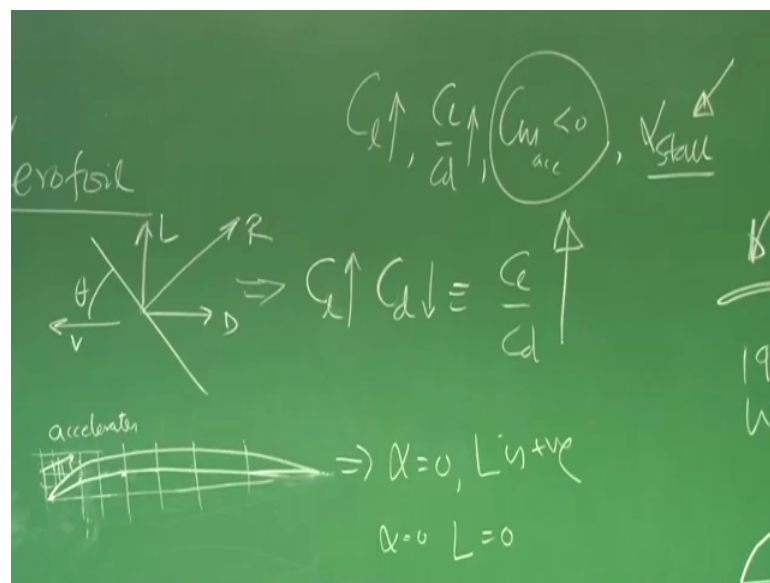 Cl↑, Cl/Cd↑, Cm acc <0, αstall
erofoil
L R
θ
V D
⇒ Cl↑ Cd↓ ≡ Cl/Cd ↑
19
accelerates
⇒ α=0, L is +ve
α=0 L=0